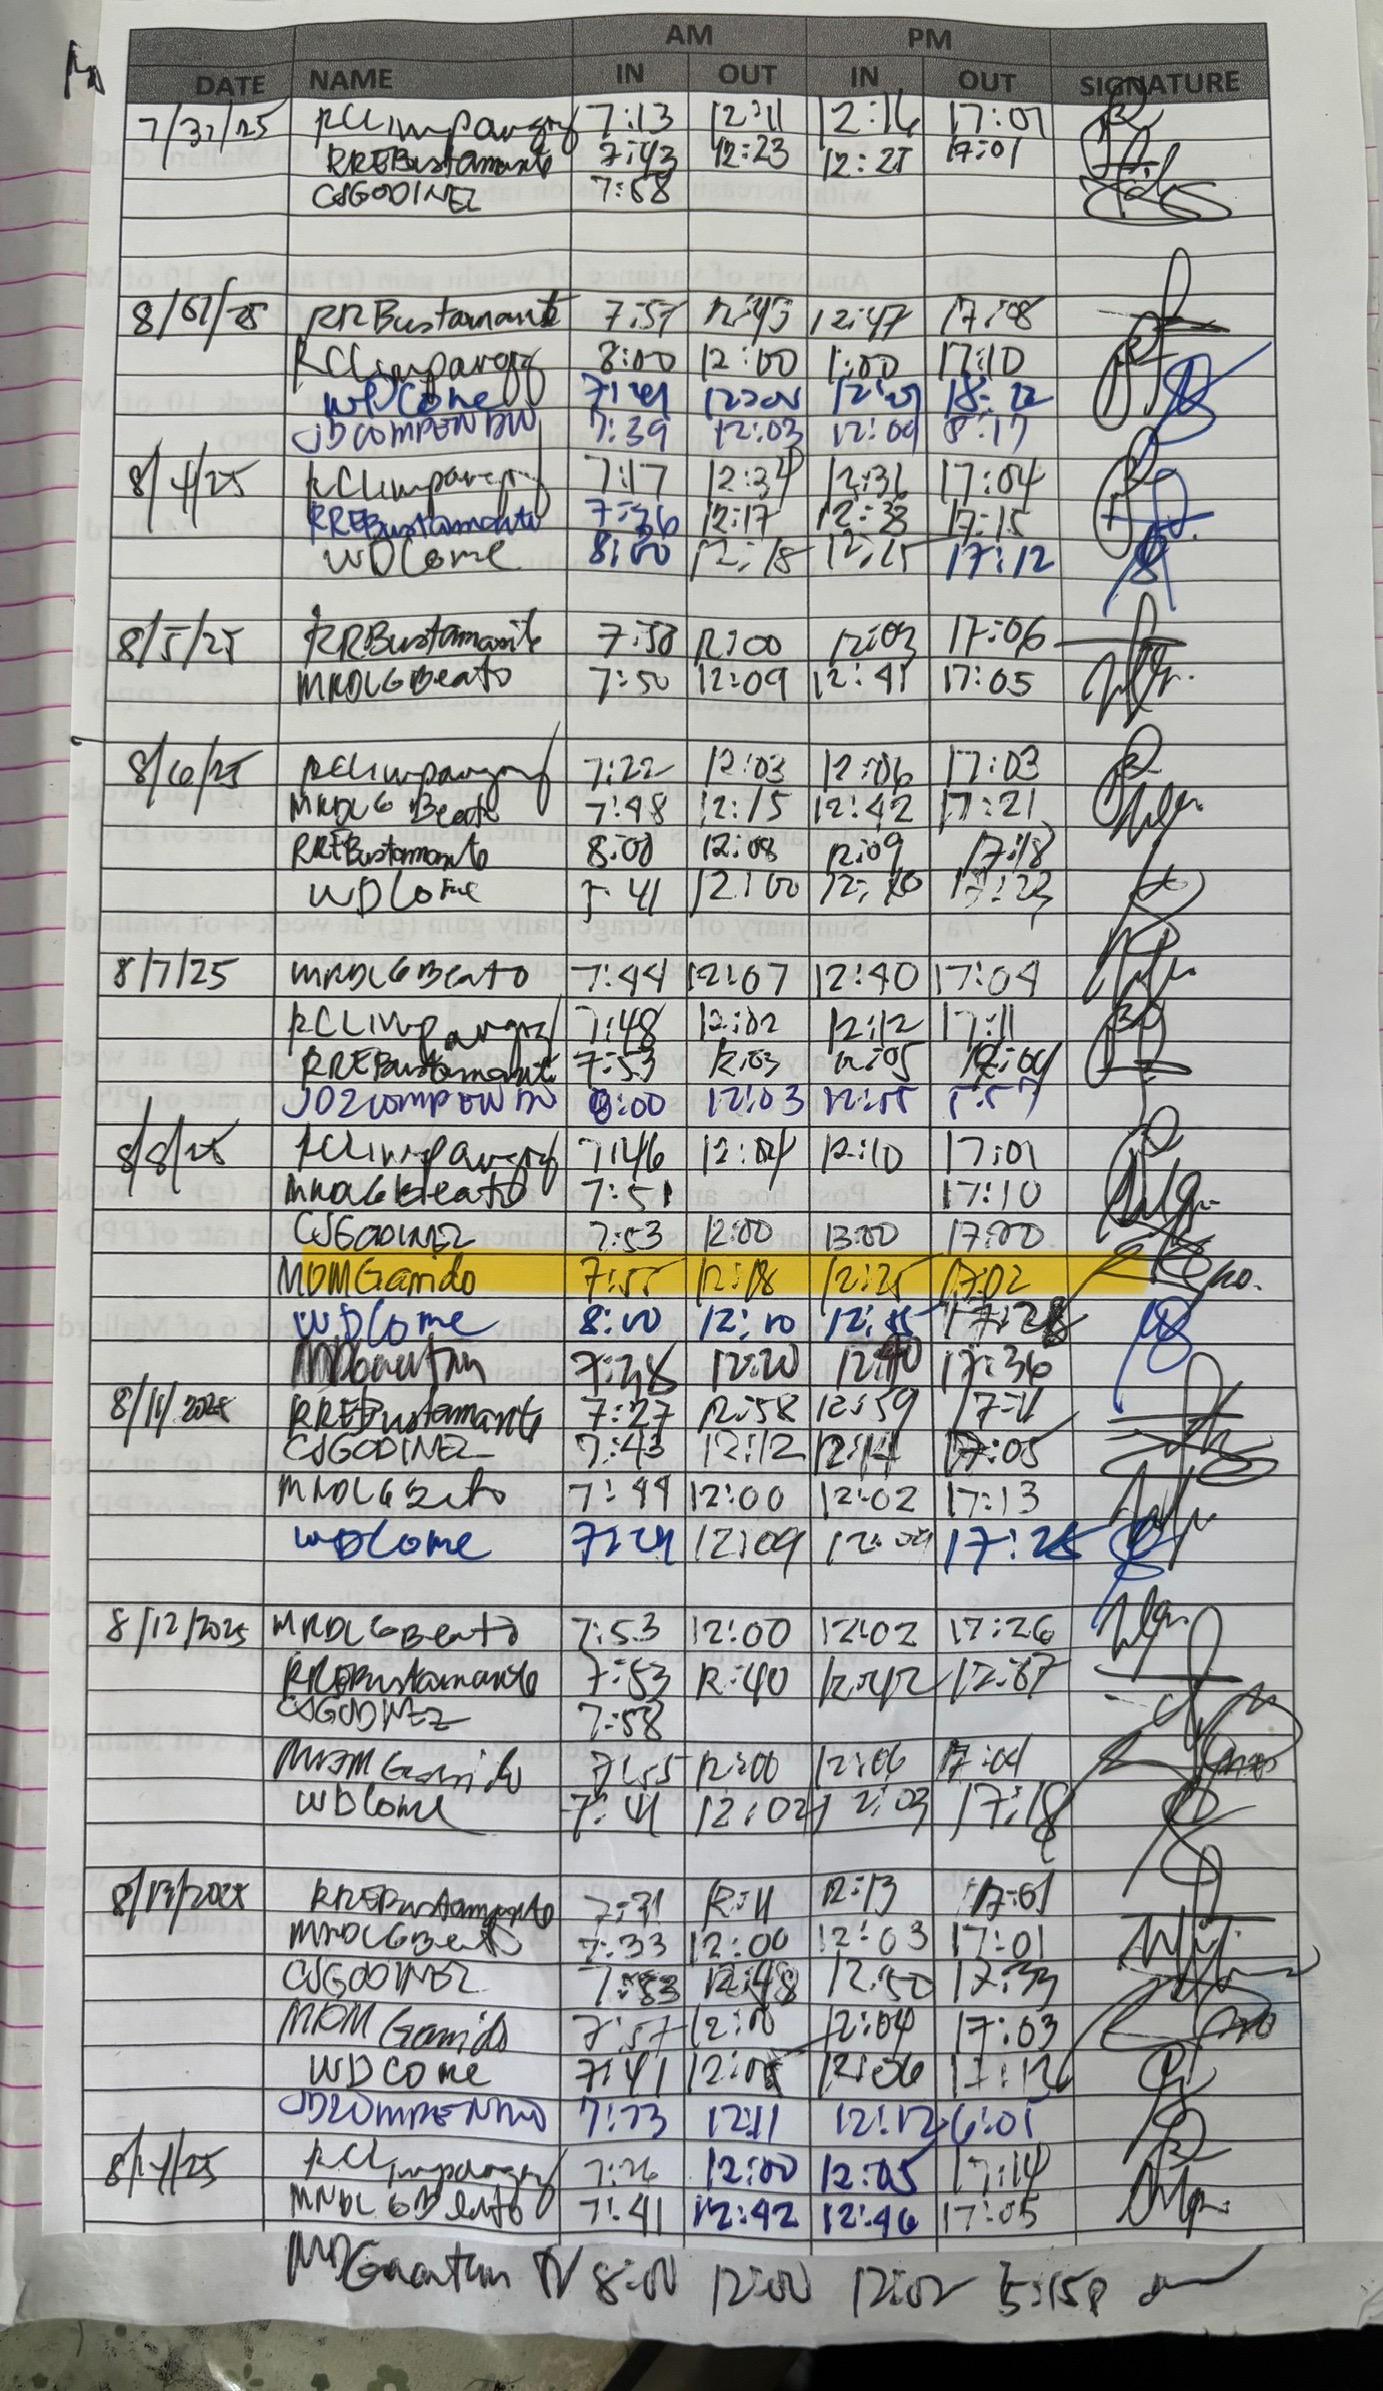 AM PM
DATE NAME IN OUT IN OUT SIGNATURE
7/31/25 RCLimpangog 7:13 12:11 12:16 17:01
RREBustamante 7:43 12:23 12:25 17:01
CSGODINEZ 7:58
8/01/25 RRBustamante 7:57 12:45 12:47 17:08
RCLimpangog 8:00 12:00 1:00 17:10
WDCome 18:22
JDCOMPENDIO 7:39 12:03 12:09 5:17
8/4/25 RCLimpangog 7:17 12:31 17:04
RREBustamante 7:36 12:17 12:33 17:15
WDCome 8:00 12:18 12:25 17:12
8/5/25 RRBustamante 7:58 12:00 12:03 17:06
MRDLGBeato 7:50 12:09 12:41 17:05
8/6/25 RCLimpangog 7:22 12:03 12:06 17:03
MRDLG Beato 7:48 12:15 12:42 17:21
RREBustamante 8:00 12:08 12:09 17:18
WDCome 7:41 12:00 12:10 17:23
8/7/25 MRDLGBeato 7:44 12:07 12:40 17:04
RCLimpangog 7:48 12:02 12:12 17:11
RREBustamante 7:53 12:03 12:05 17:04
JDZCOMPENDIO 8:00 12:03 12:55 5:57
8/8/25 RCLimpangog 7:46 12:04 12:10 17:01
MRDLGBeato 7:51 17:10
CSGODINEZ 7:53 12:00 13:00 17:00
MDMGarrido 7:55 12:18 12:25 17:02
WDCome 8:00 12:10 12:15 17:28
7:28 12:20 12:40 17:36
8/11/2025 RREBustamante 7:27 12:58 12:59 17:11
CSGODINEZ 7:43 12:12 12:14 17:05
MRDLGBeato 7:44 12:00 12:02 17:13
WDCome 7:29 12:09 12:09 17:25
8/12/2025 MRDLGBeato 7:53 12:00 12:02 17:26
RREBustamante 7:53 12:40 12:42
CSGODINEZ 7:58
MDMGarrido 7:55 12:00 12:06 17:04
WDCome 7:41 12:02 12:03 17:18
8/13/2025 RREBustamante 7:31 12:11 12:13 17:01
MRDLGBeato 7:33 12:00 12:03 17:01
CSGODINEZ 7:53 12:48 12:50 17:33
MDM Garrido 7:57 12:00 12:04 17:03
WDCome 7:41 12:05 12:06 17:12
JDZCOMPENDIO 7:73 12:11 12:12 6:01
8/14/25 RCLimpangog 7:26 12:00 12:05 17:14
MRDLGBeato 7:41 12:42 12:46 17:05
8:00 12:00 12:02 5:15p